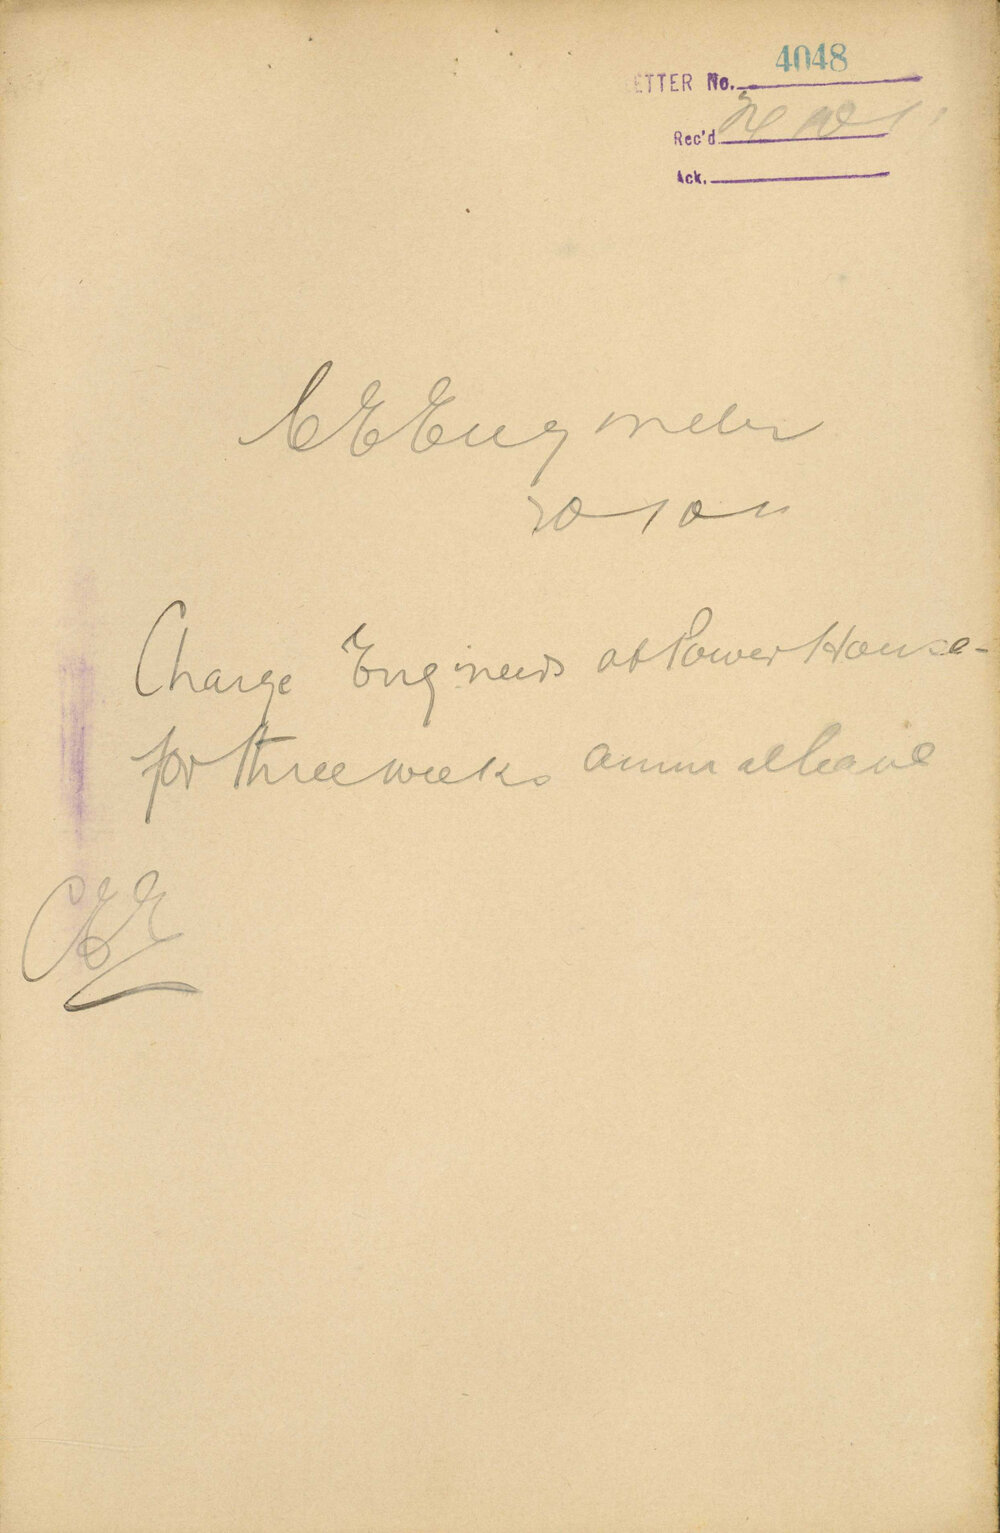 LETTER No. 4048
Rec'd
Ack.
C E Engineer
Charge Engineers at Power House-
for three weeks annual leave
CEE